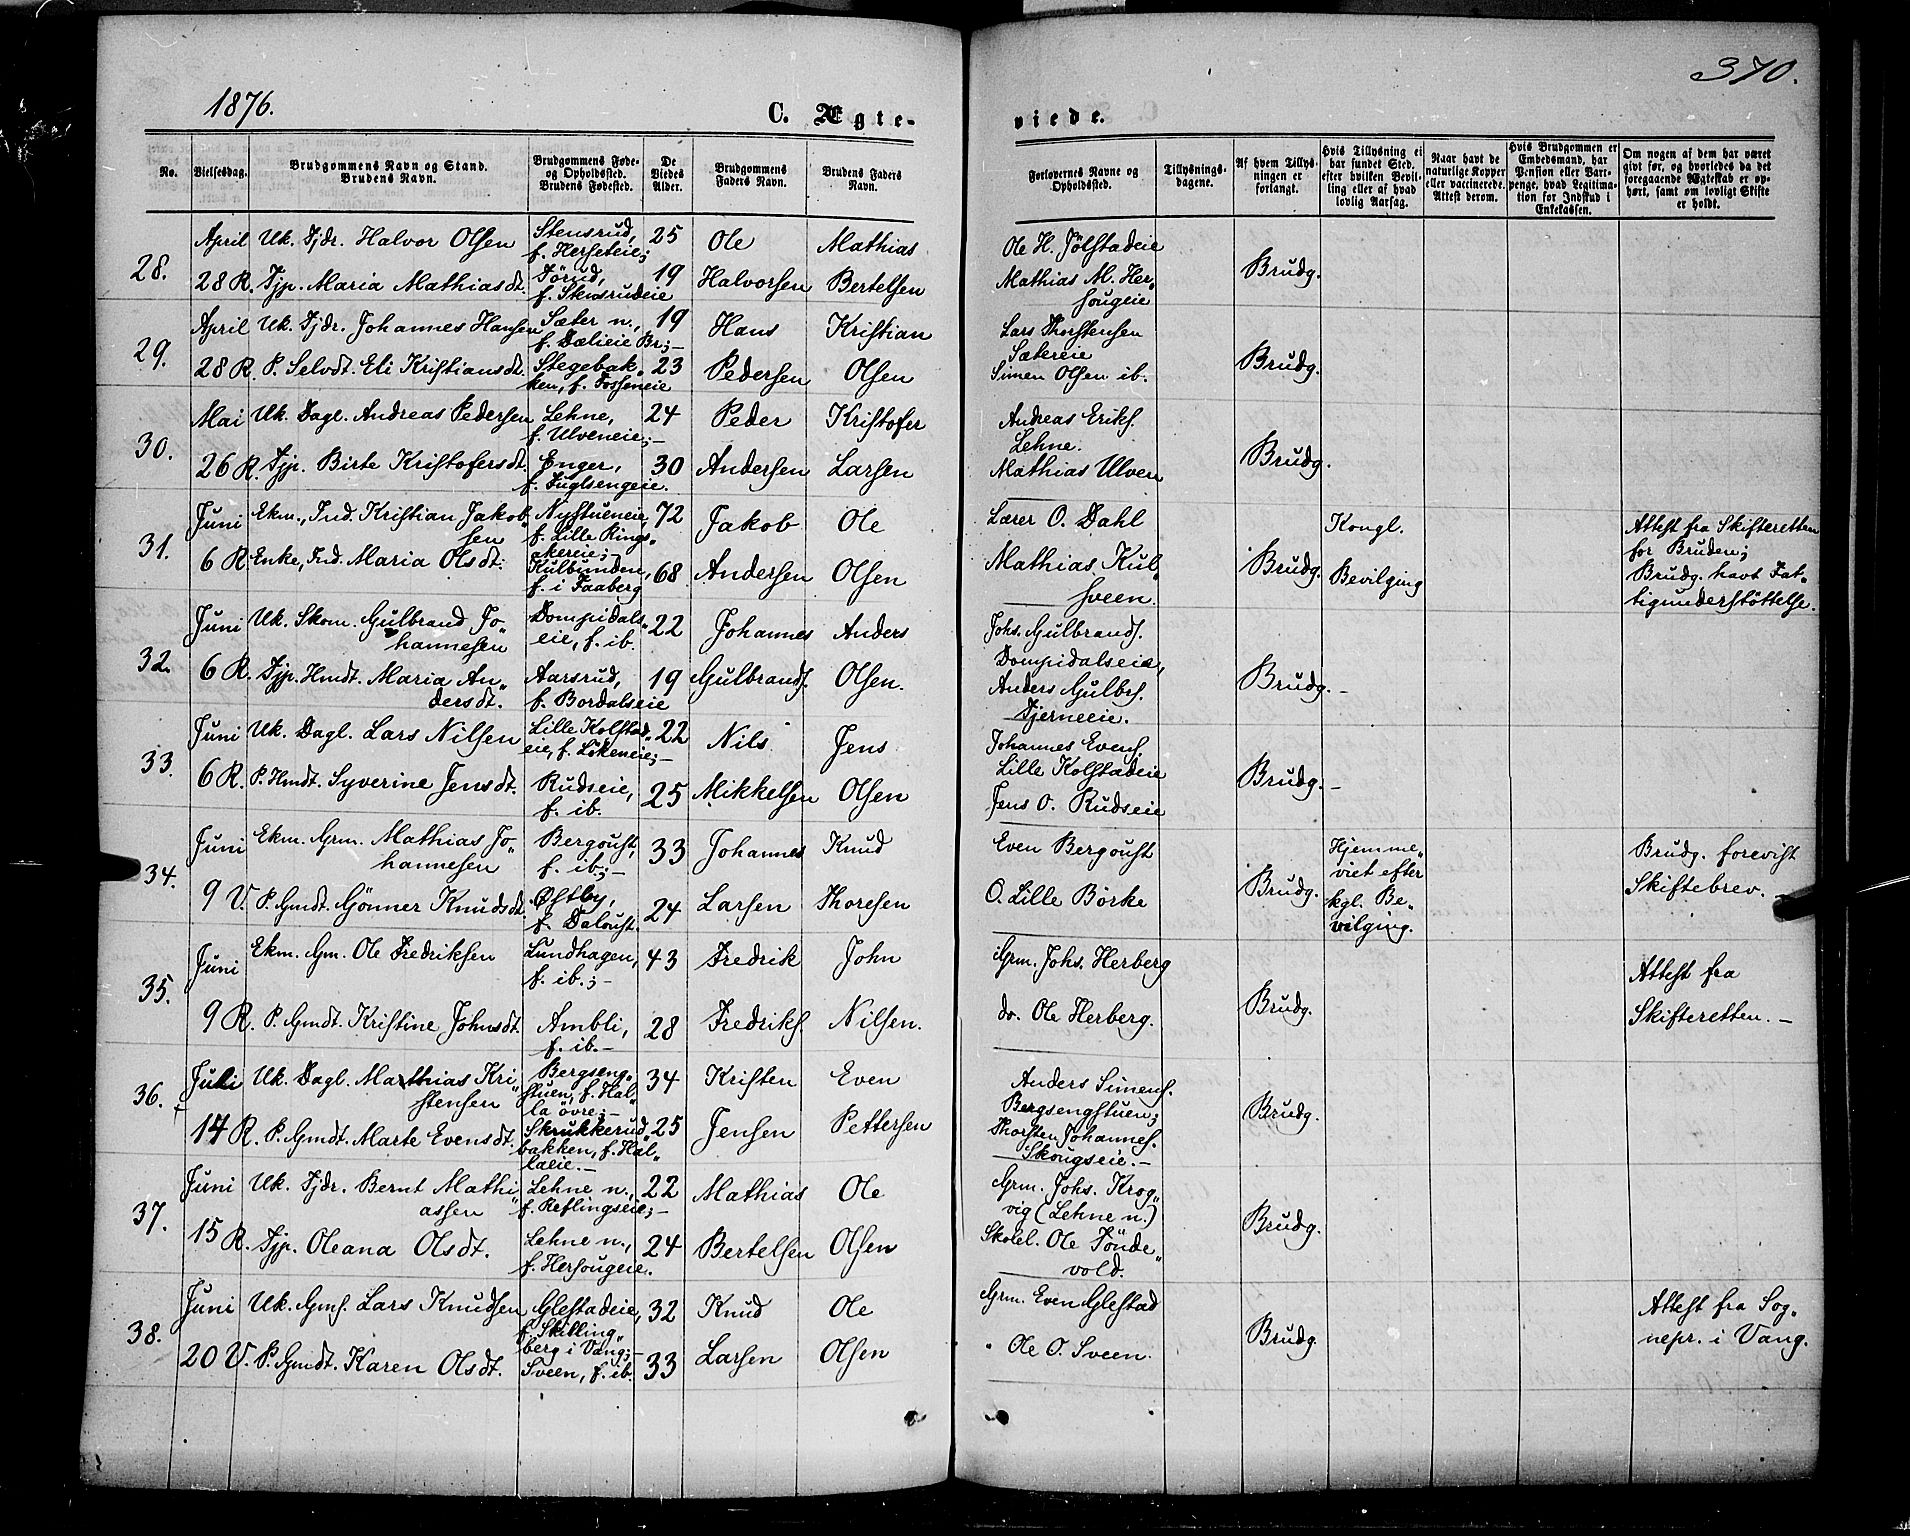 1876.
C. Ægte-
viede.
370.
No.
Vielsesdag.
Brudgommens Navn og Stand.
Brudens Navn.
Brudgommens Føde-
og Opholdssted.
Brudens Fødested.
De
Viedes
Alder.
Brudgommens
Faders Navn.
Brudens Faders
Navn.
Forlovernes Navne og
Opholdssted.
Tillysnings-
dagene.
Af hvem Tillys-
ningen er
forlangt.
Hvis Tillysning ei
har fundet Sted,
efter hvilken Bevil-
ling eller af hvad
lovlig Aarsag.
Naar havt de
naturlige Kopper
eller vaccinerede.
Attest derom.
Hvis Brudgommen er
Embedsmand, har
Pension eller Vart-
penge, hvad Legitima-
tion for Indskud i
Enkekassen.
Om nogen af dem har været
givt før, og hvorledes da det
foregaaende Ægteskab er op-
hørt, samt om lovligt Skifte
er holdt.
28.
April
28 R.
Uk. Tjdr. Halvor Olsen
Tjp. Maria Mathiasdt.
Stensrud,
f. Herseteie;
Törud,
f. Stensrudeie
25
19
Ole
Halvorsen
Mathias
Bertelsen
Ole H. Jölstadeie
Mathias M. Her„
sougeie
Brudg.
29.
April
28 R.
Uk. Tjdr. Johannes Hansen
P. Selvdt. Eli Kristiansdt.
Sæter n.,
f. Dælieie Br;-
Stegebak„
ken, f. Fosseneie
19
23
Hans
Pedersen
Kristian
Olsen
Lars Thorstensen
Sætereie
Simen Olsen ib.
Brudg.
30.
Mai
26 R.
Uk. Dagl. Andreas Pedersen
Tjp. Birte Kristofersdt.
Lehne,
f. Ulveneie;-
Enger,
f. Fuglsengeie.
24
30
Peder
Andersen
Kristofer
Larsen
Andreas Eriks.
Lehne.
Mathias Ulven
Brudg.
31.
Juni
6 R.
Ekm., Ind. Kristian Jakob„
sen
Enke, Ind. Maria Olsdt.
Nystueneie,
f. Lille Rings„
akereie;-
Kulbunden,
f. i Faaberg
72
68
Jakob
Andersen
Ole
Olsen
Lærer O. Dahl
Mathias Kul„
sveen.
Brudg.
Kongl.
Bevilging
Attest fra Skifteretten
for Bruden;
Brudg. havt Fat„
tigunderstöttelse.
32.
Juni
6 R.
Uk. Skom. Gulbrand Jo„
hannesen
Tjp. Hmdt. Maria An„
dersdt.
Dompidals„
eie, f. ib.
Aarsrud,
f. Bordalseie
22
19
Johannes
Gulbrands.
Anders
Olsen.
Johs. Gulbrands.
Dompidalseie,
Anders Gulbrs.
Tjerneeie.
Brudg.-
33.
Juni
6 R.
Uk. Dagl. Lars Nilsen
P. Hmdt. Syverine Jensdt.
Lille Kolstad„
eie, f. Lökeneie;-
Rudseie,
f. ib.
22
25
Nils
Mikkelsen
Jens
Olsen
Johannes Evens.
Lille Kolstadeie
Jens O. Rudseie
Brudg.-
34.
Juni
9 V.
Ekm. Grm. Mathias Jo„
hannesen
P. Gmdt. Gönner Knudsdt.
Bergoust,
f. ib;-
Østby,
f. Daloust.
33
24
Johannes
Larsen
Knud
Thoresen
Even Bergoust
O. Lille Börke
Brudg.
Hjemme„
viet efter
kgl. Be„
vilging.
Brudg. forevist
Skiftebrev.-
35.
Juni
9 R.
Ekm. Gm. Ole Fredriksen
P. Gmdt. Kristine Johnsdt.
Lundhagen,
f. ib.;-
Ambli,
f. ib.-
43
28
Fredrik
Fredriks.
John
Nilsen.
Grm. Johs. Herberg
do. Ole Herberg.
Brudg.
Attest fra
Skifteretten.-
36.
Juli
14 R.
Uk. Dagl. Mathias Kri„
stensen
P. Gmdt. Marte Evensdt.
Bergseng„
stuen, f. Hal„
la övre;-
Skrukkerud„
bakken, f. Hal„
laeie.-
34
25
Kristen
Jensen
Even
Pettersen
Anders Simens.
Bergsengstuen;
Thorsten Johannes.
Skougseie.-
Brudg.
37.
Juni
15 R.
Uk. Tjdr. Bernt Mathi„
assen
Tjp. Oleana Olsdt.
Lehne n.,
f. Reflingseie;-
Lehne n.,
f. Hersougeie.
22
24
Mathias
Bertelsen
Ole
Olsen
Grm. Johs. Krog„
vig (Lehne n.)
Skolel. Ole Tönde„
vold.
Brudg.
38.
Juni
20 V.
Uk. Gms. Lars Knudsen
P. Gmdt. Karen Olsdt.
Glestadeie,
f. Skilling„
berg i Vang;-
Sveen, f. ib.
32
33
Knud
Larsen
Ole
Olsen
Grm. Even Glestad
„ Ole O. Sveen.
Brudg.
Attest fra Sog„
nepr. i Vang.